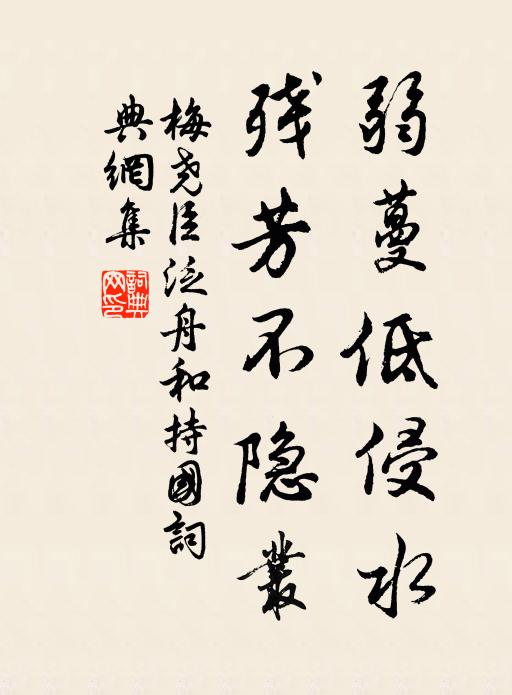 弱蔓低侵水
残芳不隐叢
梅尧臣泛舟和持國詞
典網集
詞典網印